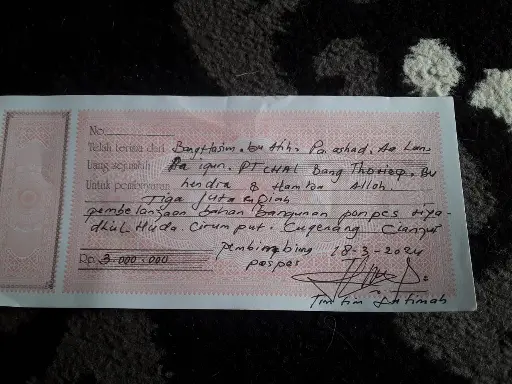 No.
Telah terima dari Bang Hasim. bu Atih. Pa arshad. Aa Lan
Uang sejumlah Aa igun. PT CHAL Bang Thoriq. Bu
Untuk pembayaran hendra & Hamba Alloh
Tiga Juta Rupiah
pembelanjaan bahan bangunan ponpes riya-
dhul Huda. Cirumput. Cugenang Cianjur
pembimbing 18-3-2024
Rp. 3.000.000 ponpes
Timtim Fatimah